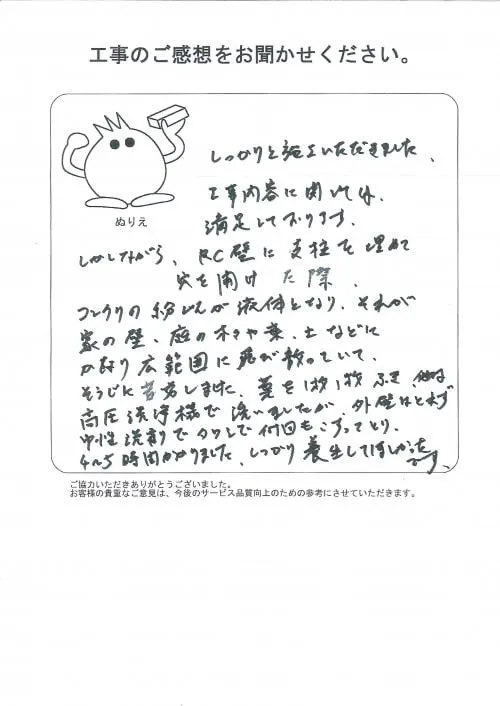 工事のご感想をお聞かせください。
ぬりえ
しっかりと施工いただきました、
工事内容に関しては、
満足しております。
しかしながら、RC壁に支柱を埋めて
穴を開けた際、
コンクリの粉じんが液体となり、それが
家の壁、庭の木々や葉、土などに
かなり広範囲に飛び散っていて、
そうじに苦労しました、葉を1枚1枚ふき、他は
高圧洗浄機で洗いましたが、外壁はとれず
中性洗剤でタワシで何回もこすってとり、
4~5時間かかりました、しっかり養生してほしかった
です、
ご協力いただきありがとうございました。
お客様の貴重なご意見は、今後のサービス品質向上のための参考にさせていただきます。